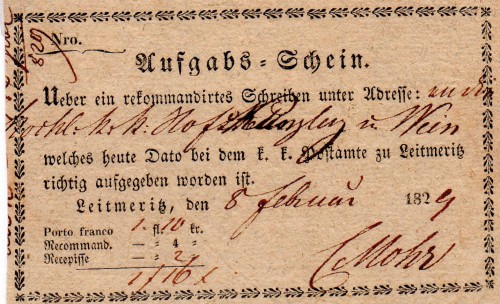 Nro. 829
Aufgabs-Schein.
Ueber ein rekommandirtes Schreiben unter Adresse: an die
k: k: Hof in Wien
welches heute Dato bei dem k. k. Postamte zu Leitmeritz
richtig aufgegeben worden ist.
Leitmeritz, den 8 Februar 1829
Porto franco 1. fl. 10 kr.
Recommand. — „ 4 „
Recepisse — „ 2 „
1/16 x
CMohr